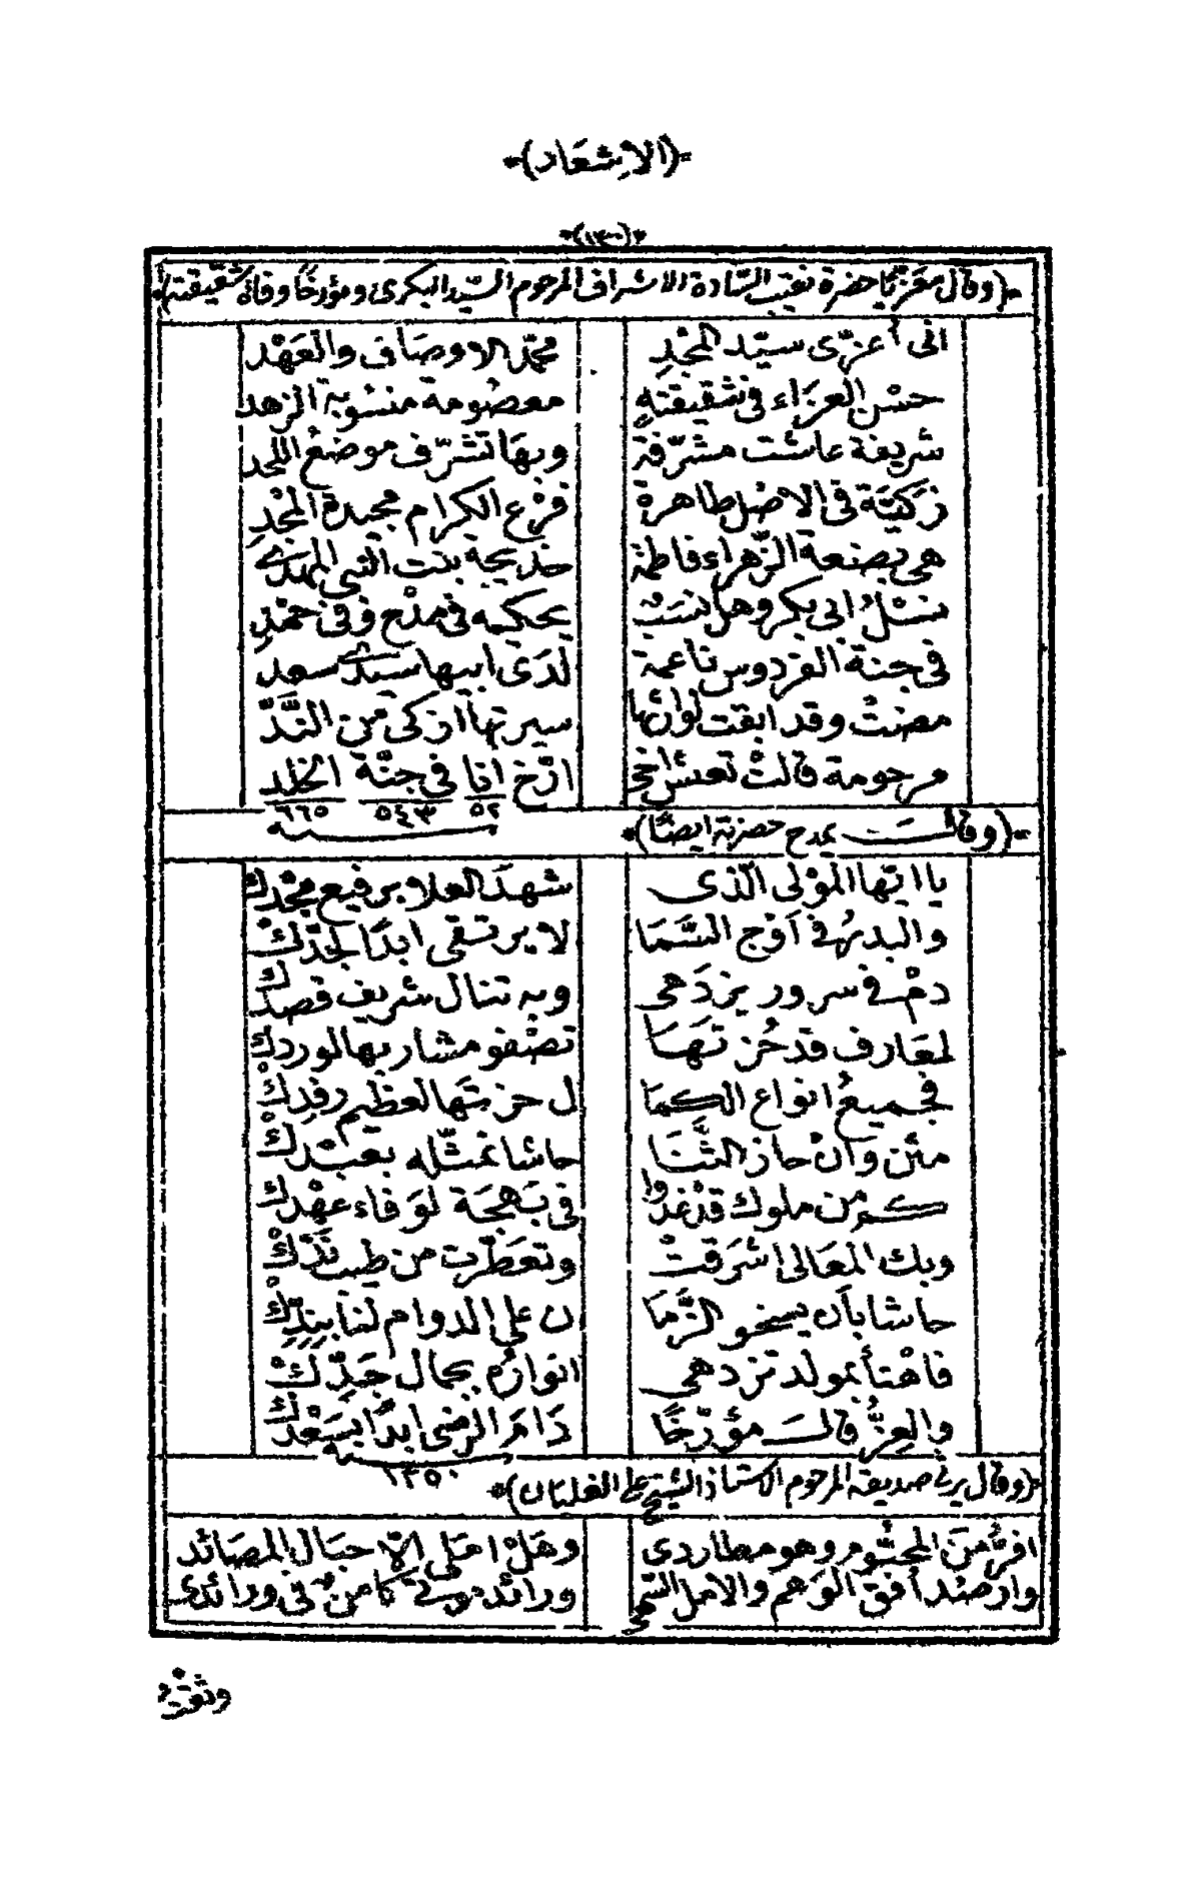 (الاشعار)
(١٣٠)
(وقال معزيا حضرة نقيب السادة الاشراف المرحوم السيد البكرى ومؤرخا وفاة شقيقته)
انى أعزّى سيّد المجْدِ محمّد الاوصاف والعَهْد
حسْن العزَاء فى شقيقتهِ معصُومة منسُوبة الزهد
شريفة عاشت مشرّفة وبهَا تشرّف موضعُ اللحد
زكيّة فى الاصْل طاهرة فرْع الكرام مجيدة المجْدِ
هى بضعة الزّهراء فاطمة خديجة بنت النبى المهدى
نسْلُ ابى بكر وهل نسَبٌ يحكيه فى مدْح وفى حمْدِ
فى جنة الفردوس ناعمة لدَى ابيها سيدى سعد
مضتْ وقد ابقت لوارثها سيرتها ازكى من النَّدّ
مرحومة قالتْ تعش اخى ارّخ انا فى جنّة الخلد
٥٢ ٥٤٣ ٦٦٥
(وقالت بمدح حضرته ايضًا)
يا ايّها الموْلى الّذى شهدَ العلا برفيع مجْدك
والبدرُ فى اوْج السَّمَا لا يرتقى ابدًا لجدّكْ
دمْ فى سرور يزدَهى وبه تنال شريف قصدك
لمعَارف قد حُزتهَا تصْفو مشاربها لوردك
فجميعُ انواع الكمَا ل حزتهَا لعظيم رفدِكْ
مثن وَانْ حاز الثّنَا حاشا نمثّله بعَبْدكْ
كم من ملوك قدْ غدوا فى بَهجَة لوَفاء عهْدك
وبك المعَالى اشرَقتْ وتعَطّرت من طيب ندّكْ
حاشا بأن يسخو الزَّمَا ن على الدوام لنا بندِّكْ
فاهْنأ بمولد تزدهى انوارُه بجمال جَدِّكْ
والعِزُّ قالت مؤرّخًا دَامَ الرضى ابدًا بسَعْدكْ
سنة ١٢٥٠
(وقال يرثى صديقه المرحوم الاستاذ الشيخ على الغلبان)
افرُّ منَ المحتُوم وهو مطاردى وهَلْ املى الّا حبَال المصَائد
وارصُد أفق الوَهم والامل السّهى ورائد موتى كامنٌ فى ورائدى
وثقت